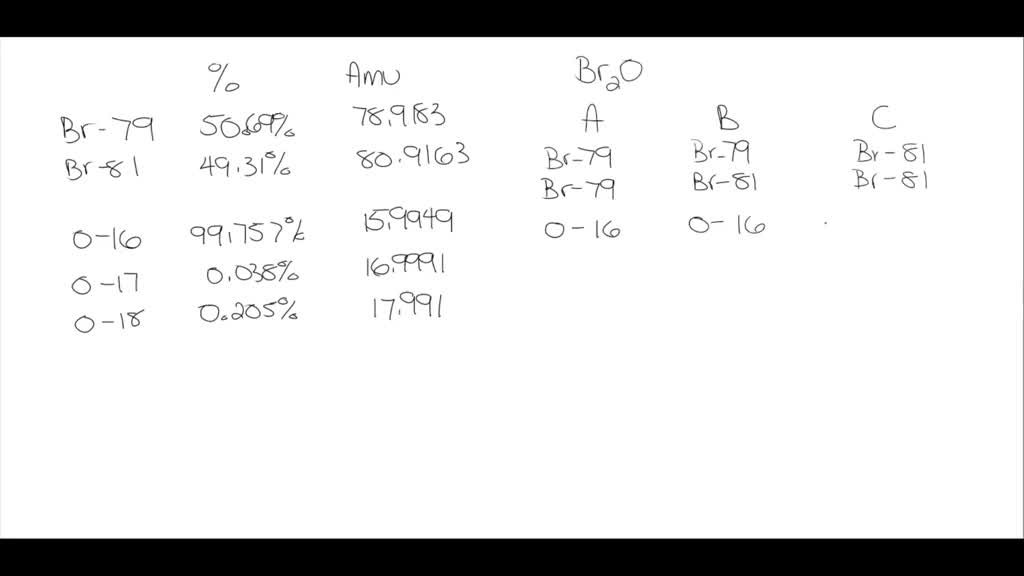 % Amu Br₂O
Br-79 50.69% 78.9183 A B C
Br-81 49.31% 80.9163 Br-79 Br-79 Br-81
Br-79 Br-81 Br-81
O-16 99.757% 15.9949 O-16 O-16
O-17 0.038% 16.9991
O-18 0.205% 17.991